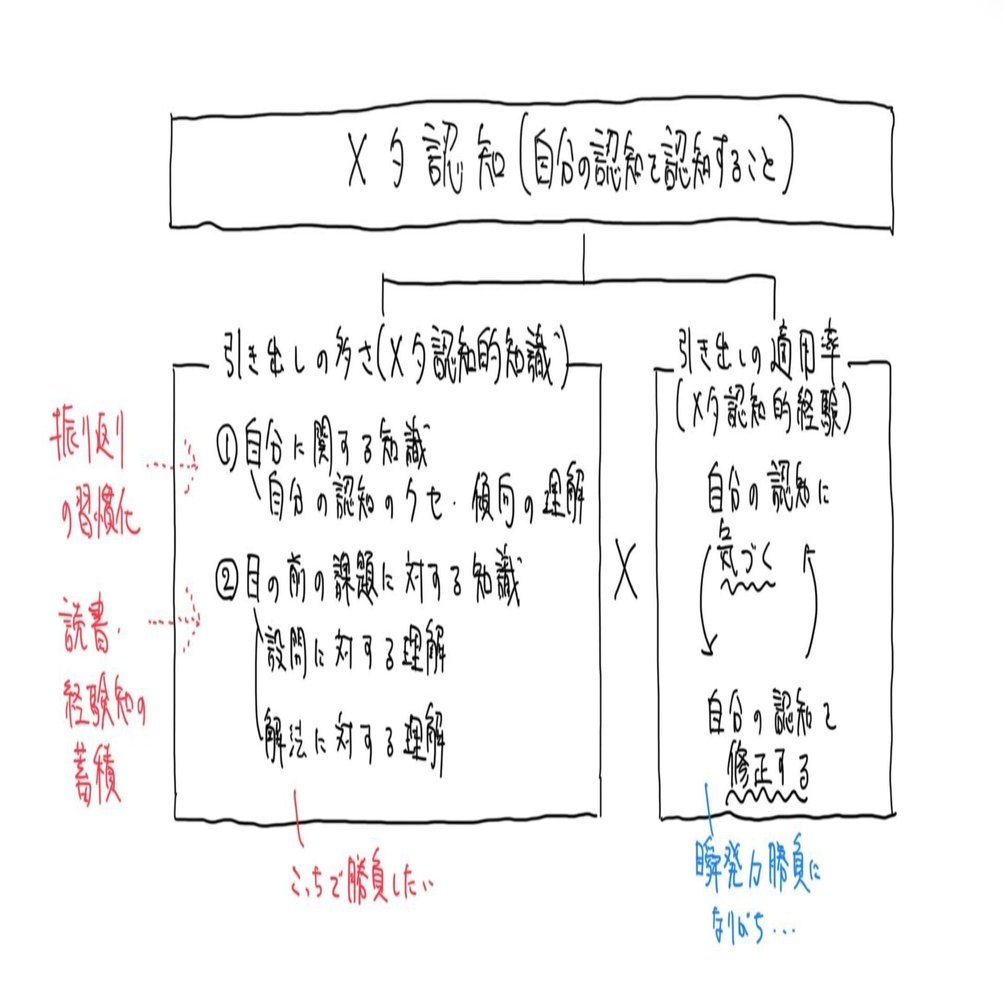 メタ認知(自分の認知を認知すること)
引き出しの多さ(メタ認知的知識)
①自分に関する知識
自分の認知のクセ・傾向の理解
②目の前の課題に対する知識
設問に対する理解
解法に対する理解
×
引き出しの適用率
(メタ認知的経験)
自分の認知に
気づく
自分の認知を
修正する
振り返り
の習慣化
読書・
経験知の
蓄積
こっちで勝負したい
瞬発力勝負に
なりがち…